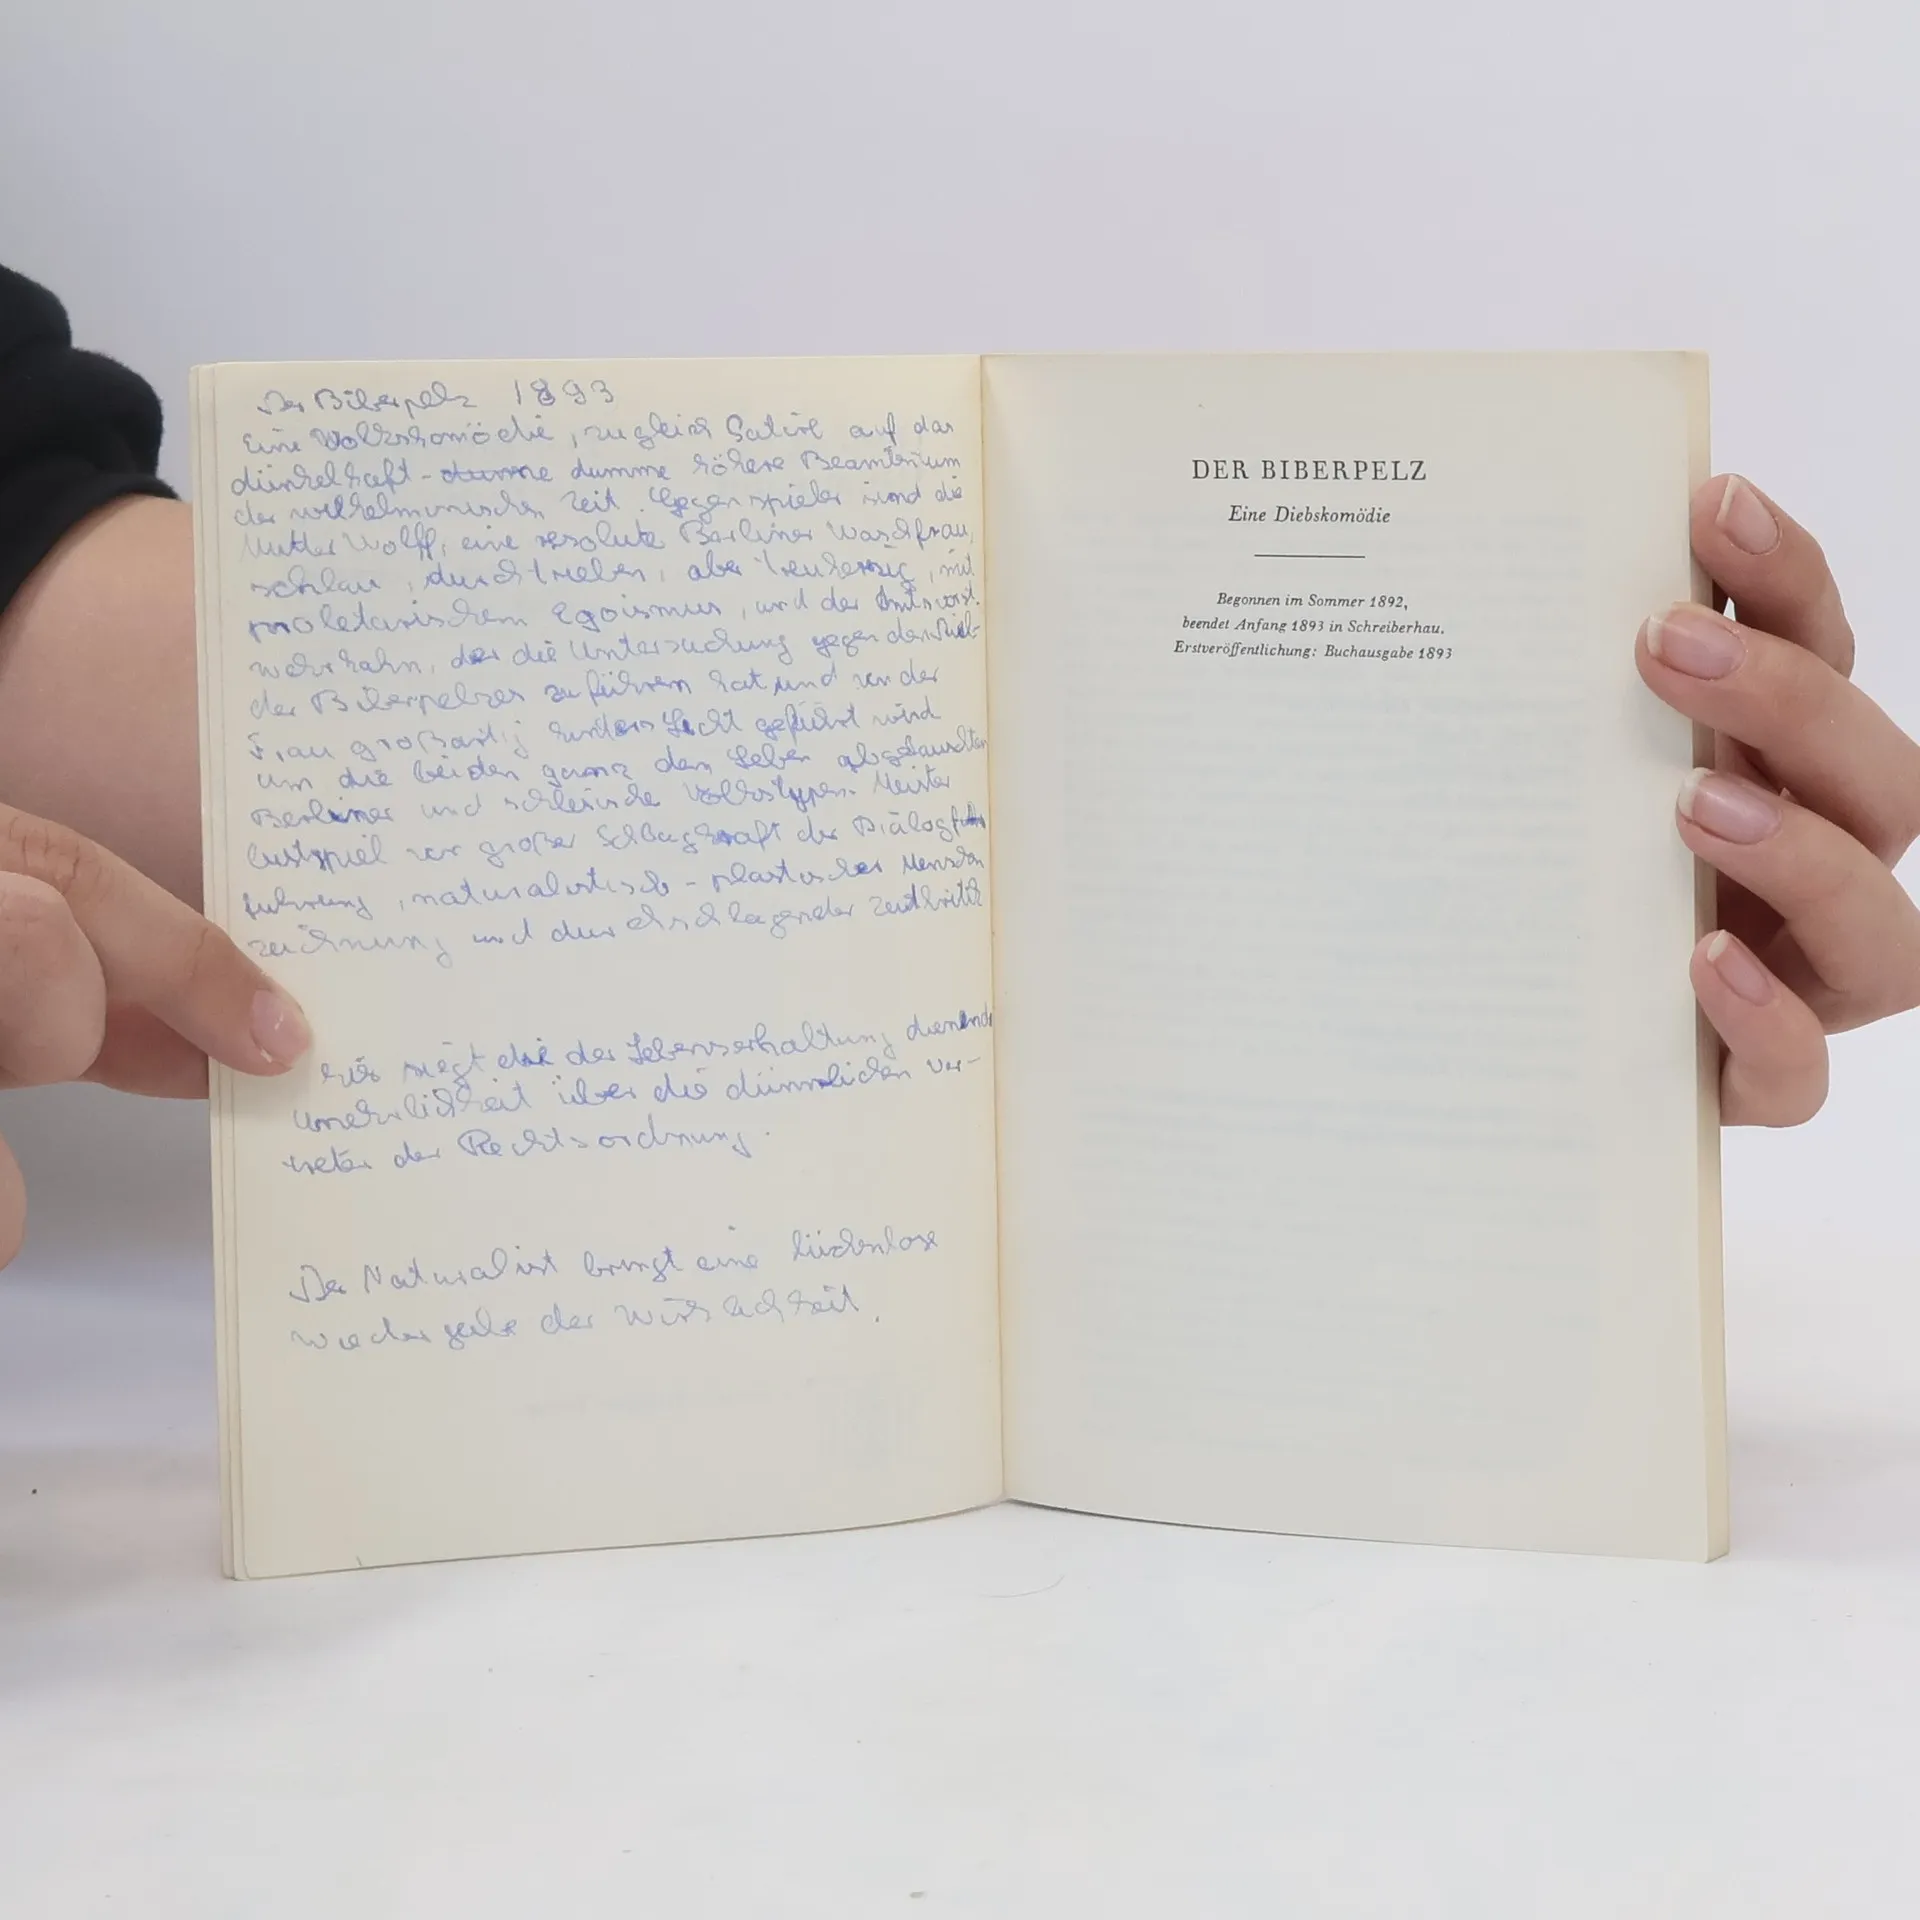 Der Biberpelz 1893
Eine Volkskomödie, zugleich Satire auf das
dünkelhaft - dumme dumme höhere Beamtentum
der wilhelminischen Zeit. Gegenspieler sind die
Mutter Wolff, eine resolute Berliner Waschfrau,
schlau, durchtrieben, aber treuherzig, mit
proletarischem Egoismus, und der Amtsvorst.
wehrhahn, der die Untersuchung gegen den
der Biberpelzes zu führen hat und von der
Frau großartig hinters Licht geführt wird
um die beiden ganz dem Leben abgelauschten
Berliner und schlesische Volkstypen. Meister
lustspiel von großer Schlagkraft der Dialog
führung, naturalistisch - plastischer Menschen
zeichnung und durchschlagender Zeitkritik
Hier siegt die der Lebenserhaltung dienende
Unehrlichkeit über die dümmlichen Ver-
treter der Rechtsordnung.
Der Naturalist bringt eine lückenlose
Wiedergabe der Wirklichkeit.
DER BIBERPELZ
Eine Diebskomödie
Begonnen im Sommer 1892,
beendet Anfang 1893 in Schreiberhau.
Erstveröffentlichung: Buchausgabe 1893